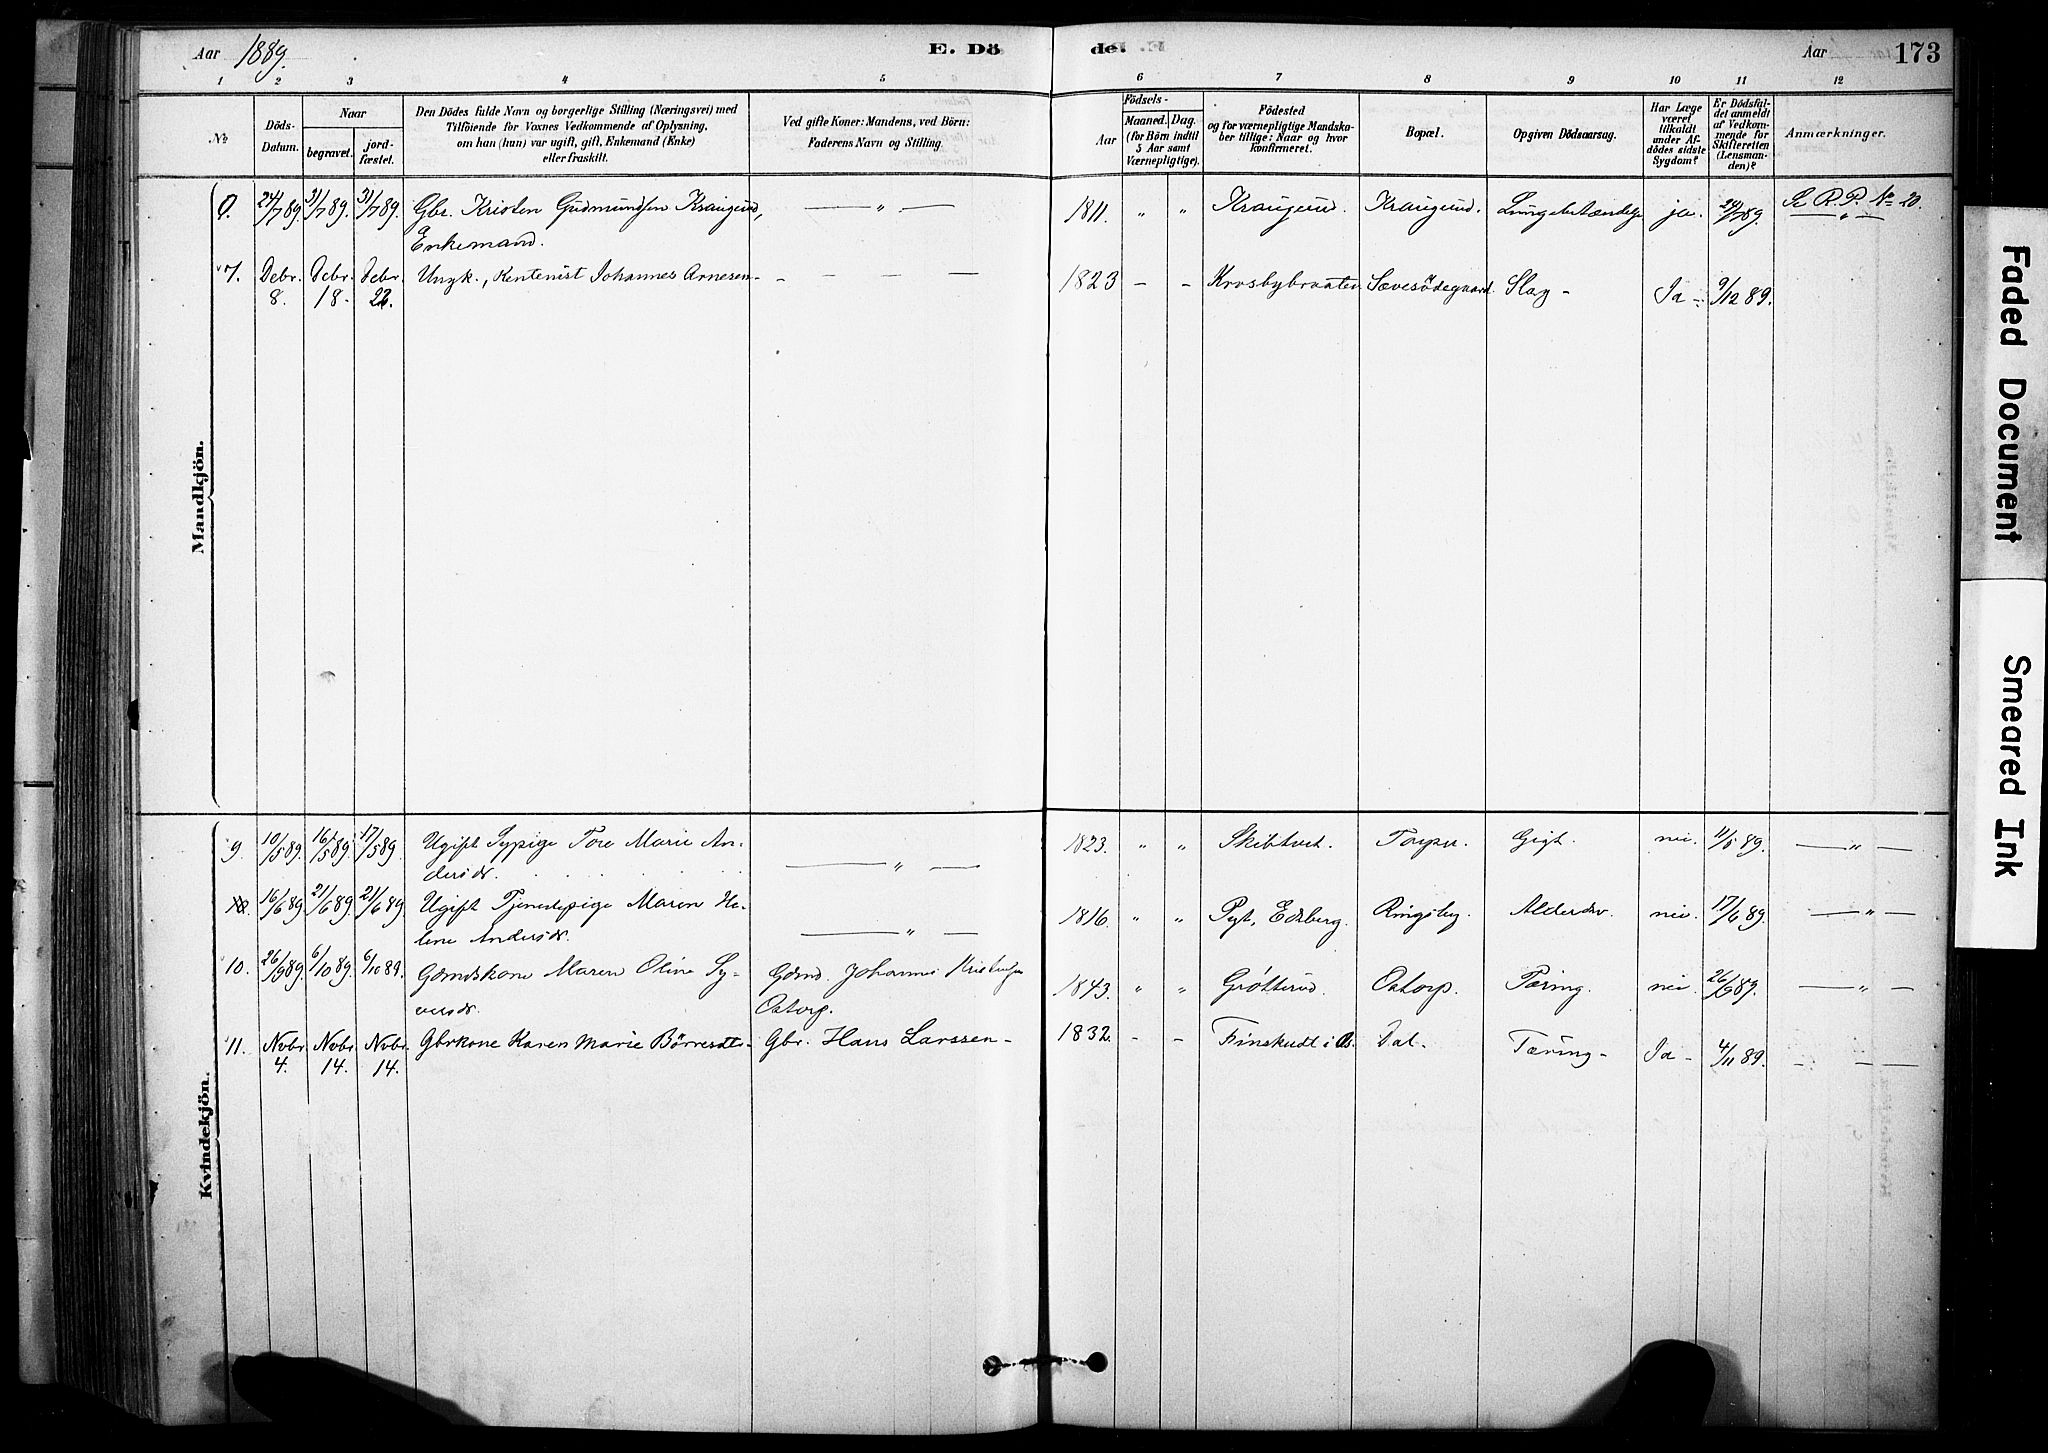 Aar 1889.
E. Dö
de.
Aar
173
1 2 3 4 5 6 7 8 9 10 11 12
No
Döds-
Datum.
Naar
begravet.
jord-
fæstet.
Den Dödes fulde Navn og borgerlige Stilling (Næringsvei) med
Tilföiende for Voxnes Vedkommende af Oplysning,
om han (hun) var ugift, gift, Enkemand (Enke)
eller fraskilt.
Ved gifte Koner: Mandens, ved Börn:
Faderens Navn og Stilling.
Födsels-
Aar
Maaned. Dag.
(for Börn indtil
5 Aar samt
Værnepligtige).
Födested
og for værnepligtige Mandska-
ber tillige: Naar og hvor
konfirmeret.
Bopæl.
Opgiven Dödsaarsag.
Har Læge
været
tilkaldt
under Af-
dödes sidste
Sygdom?
Er Dödsfal-
det anmeldt
af Vedkom-
mende for
Skifteretten
(Lensman-
den)?
Anmærkninger.
Mandkjön.
24/7 89. 31/7 89. 31/7 89. Gbr. Kristen Gudmundsen Kraugerud, — " — 1811. " " Kraugerud. Kraugerud. Lungebetændelse ja. 24/7 89. R. P. No 20.
Enkemand.
7. Debr. 8. Debr. 18. Debr. 22. Ungk., Johannes Arnesen — — — — 1823 — — Krosbybraaten Sævesödegaard. Slag - Ja - 9/12 89.
Kvindekjön.
9. 10/5 89. 16/5 89. 17/5 89. Ugift Sypige Tore Marie An-
dersdr. — " — 1823. " " Skibtvet. Gigt. nei. 11/5 89. — " —
16/6 89. 21/6 89. 21/6 89 Ugift Tjenestepige Maren He-
lene Andersdr. — " — 1816. " " Pgt, Edsberg. Ringsby. Alderdsv. nei. 17/6 89. — " —
10. 26/9 89. 6/10 89. 6/10 89. Gdmdskone Maren Oline Sy-
versdr. Gdmd. Johannes
Ostorp. 1843. " " Grötterud. Ostorp. Tæring. nei. 26/9 89. — " —
11. Novbr 4. Novbr 14. Novbr. 14. Gbrkone Karen Marie Börresdtr- Gbr. Hans Larssen - 1832. - - Dal. Tæring - Ja - 4/11 89. — — —
Faded Document
Smeared Ink